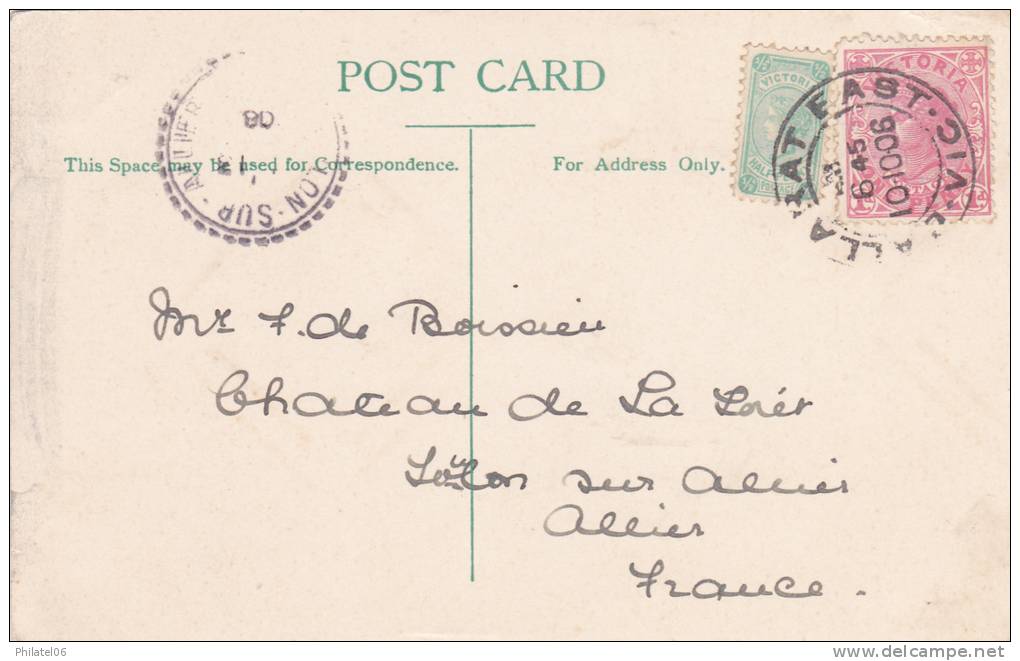 POST CARD
This Space may be used for Correspondence.
For Address Only.
VICTORIA
HALF
VICTORIA
BALLARAT EAST. VIC
6 45
101006
ON-SUR-ALLIER
08
Mr F. de Boissieu
Chateau de La Forêt
sur Allier
Allier
France.
Philatel06
delcampe.net